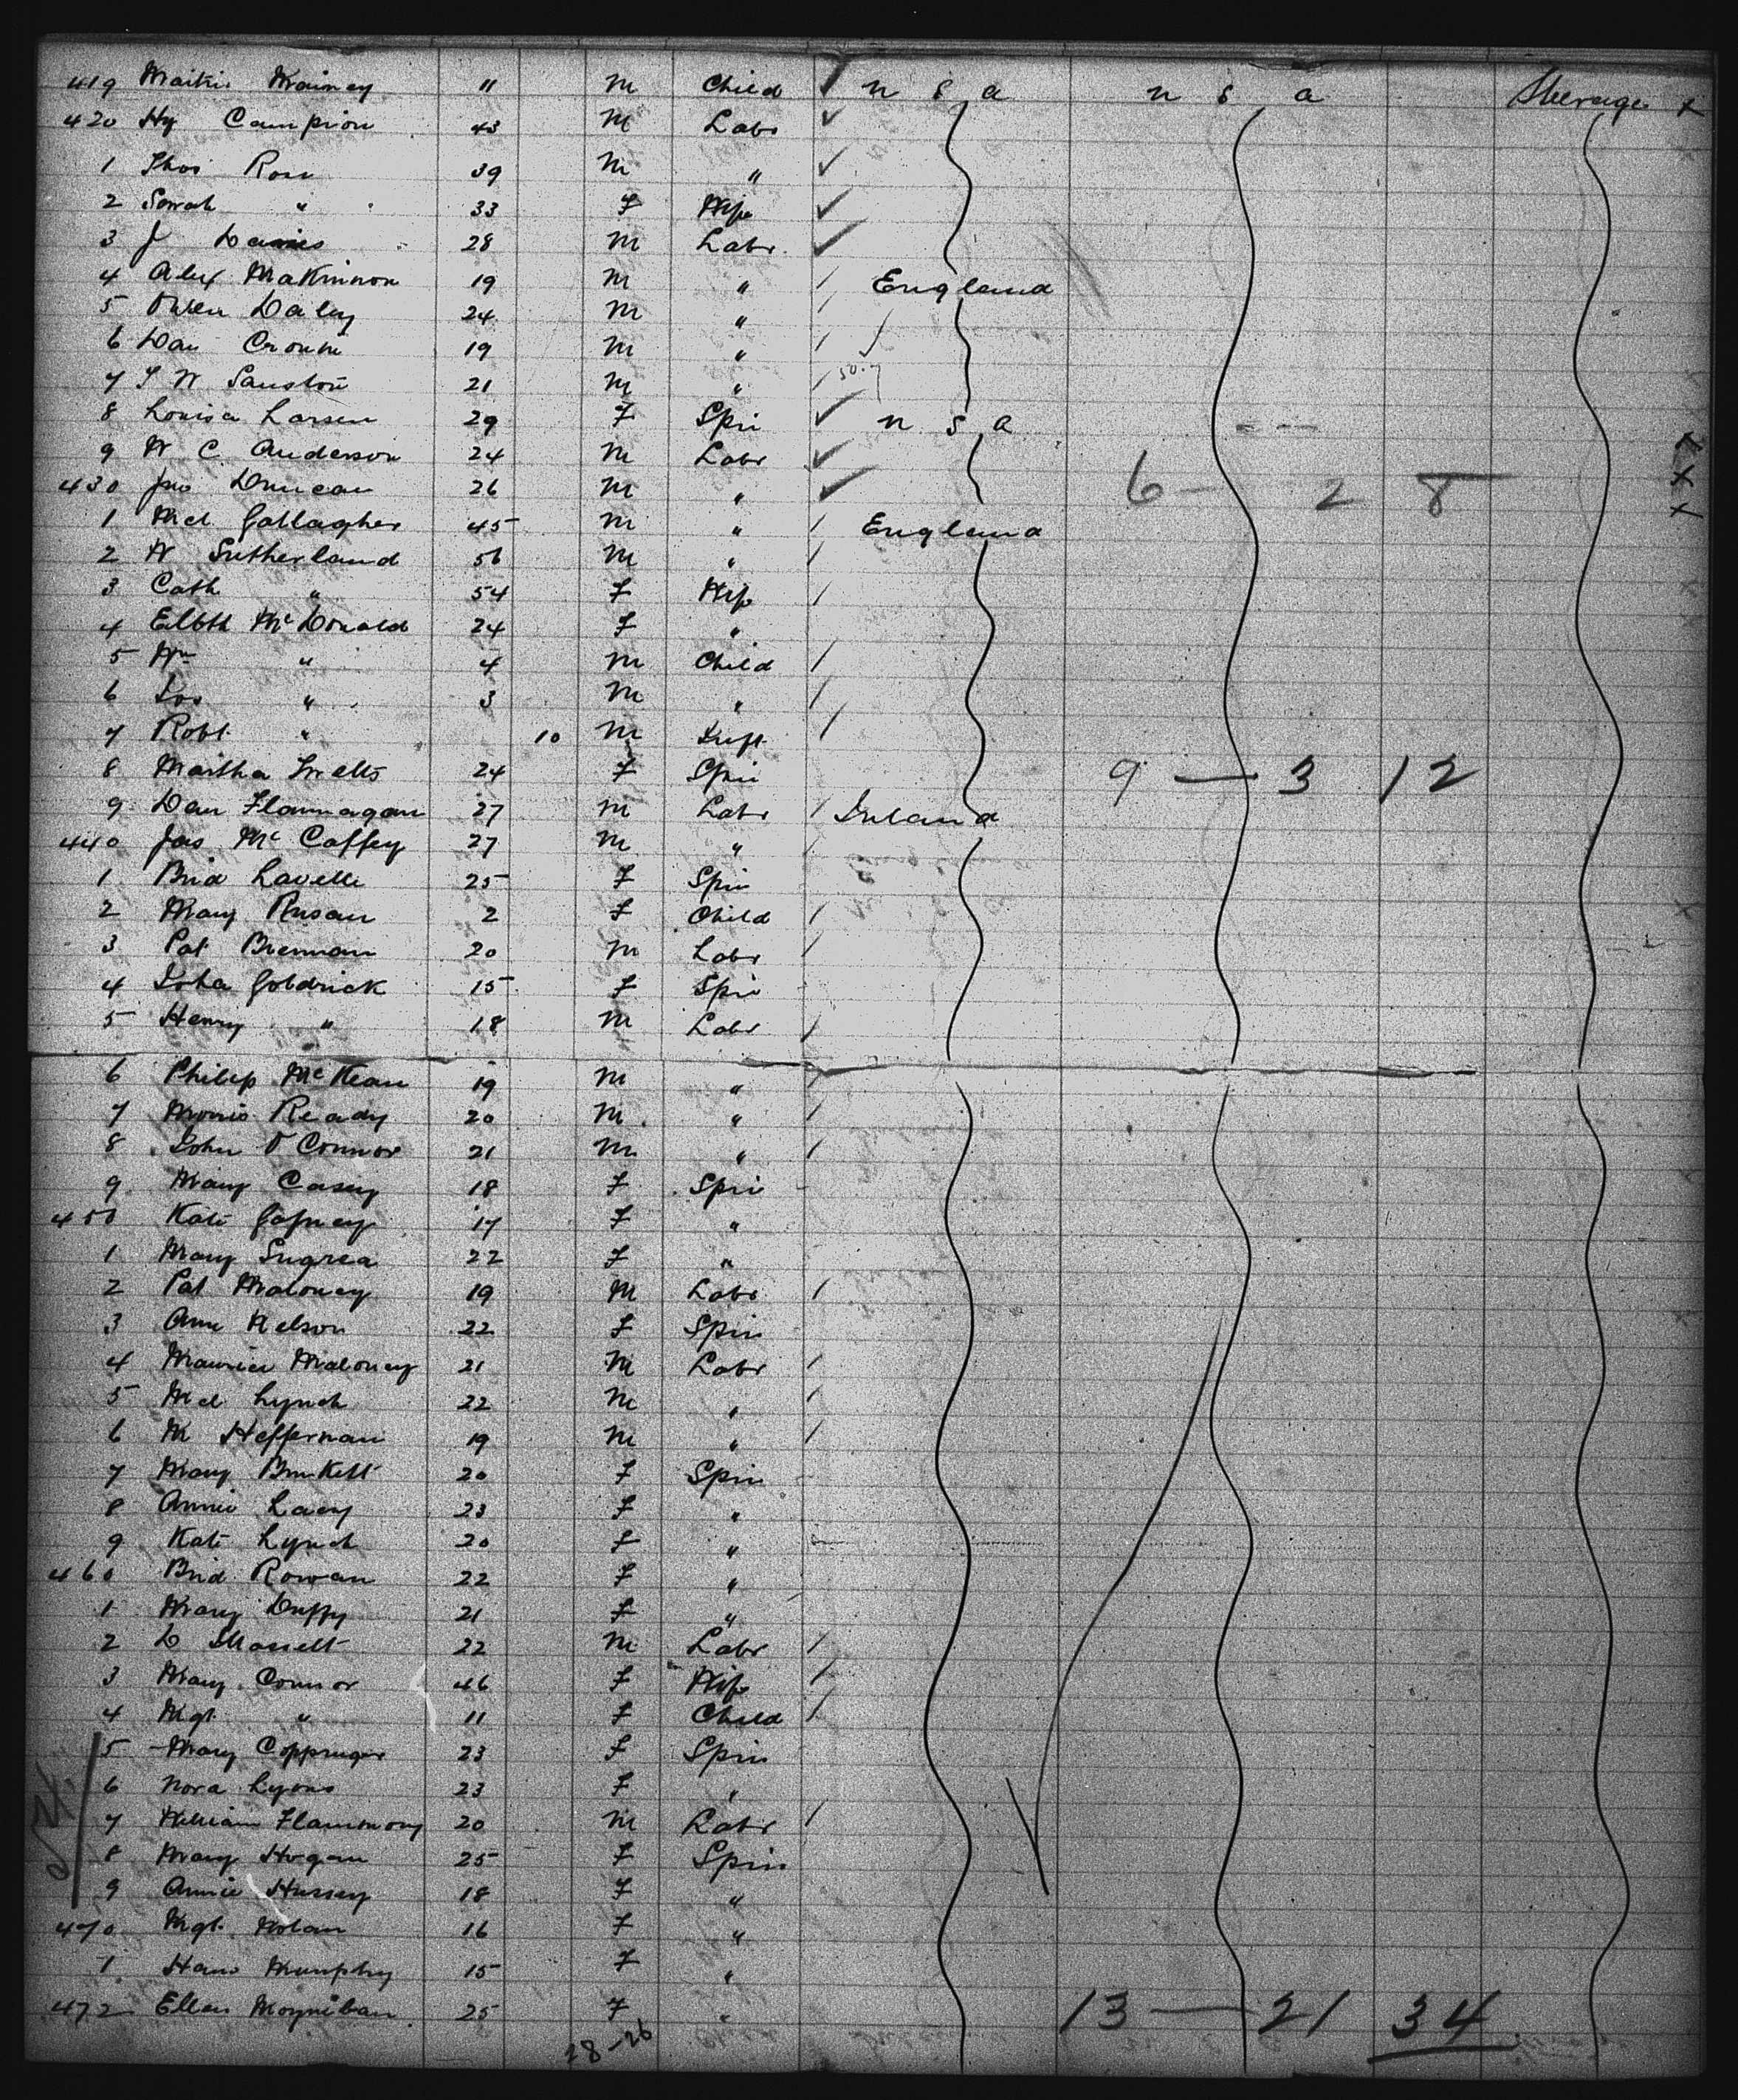 419 Kainey 11 M Child n s a n s a Steerage x
420 Hy Campion 43 M Labr
1 Thos Ross 39 M "
2 Sarah " 33 F Wife
3 J Davies 28 M Labr
4 Alex MaKinnon 19 M " England
5 Owen Daley 24 M "
6 Dan Cronin 19 M "
7 21 M "
8 Louisa Larsen 29 F Spin n s a
9 W C Anderson 24 M Labr
430 Jno Duncan 26 M " 6 — 2 8
1 Mcl Gallagher 45 M " England
2 W Sutherland 56 M "
3 Cath " 54 F Wife
4 Elbth McDonald 24 F "
5 Wm " 4 M Child
6 Jos " 3 M "
7 Robt " 10 M Inft
8 Martha 24 F Spin 9 — 3 12
9 Dan Flannagan 27 M Labr Ireland
440 Jas McCaffey 27 M "
1 Brid Lavelle 25 F Spin
2 Mary 2 F Child
3 Pat Brennan 20 M Labr
4 Goldrick 15 F Spin
5 Henry " 18 M Labr
6 Philip McKean 19 M "
7 Morris Ready 20 M "
8 John O Connor 21 M "
9 Mary Casey 18 F Spin
450 Kate Gafney 17 F "
1 Mary Sugrea 22 F "
2 Pat Maloney 19 M Labr
3 Ann Nelson 22 F Spin
4 Maurice Maloney 21 M Labr
5 Mcl Lynch 22 M "
6 M Heffernan 19 M "
7 Mary 20 F Spin
8 Annie Lacy 23 F "
9 Kate Lynch 20 F "
460 Brid Rowan 22 F "
1 Mary Duffy 21 F "
2 22 M Labr
3 Mary Connor 46 F Wife
4 Mgt " 11 F Child
5 Mary 23 F Spin
6 Nora Lyons 23 F "
7 William 20 M Labr
8 Mary Hogan 25 F Spin
9 Annie Hussey 18 F "
470 Mgt Nolan 16 F "
1 Murphy 15 F "
472 Ellen Moynihan 25 F " 13 — 21 34
28-26